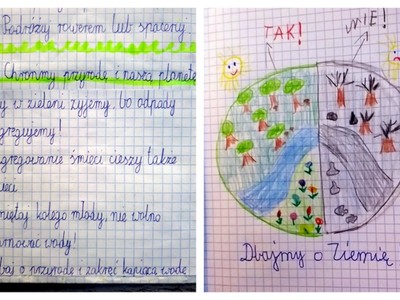 Podróżuj rowerem lub spacery
Chrońmy przyrodę i naszą planetę
y w zieleni żyjemy, bo odpady
gregujemy!
gregowanie śmieci cieszy także
ieci
miętaj kolego młody, nie wolno
marnować wody!
baj o przyrodę i zakręć kapiącą wodę
TAK!
NIE!
Dbajmy o Ziemię